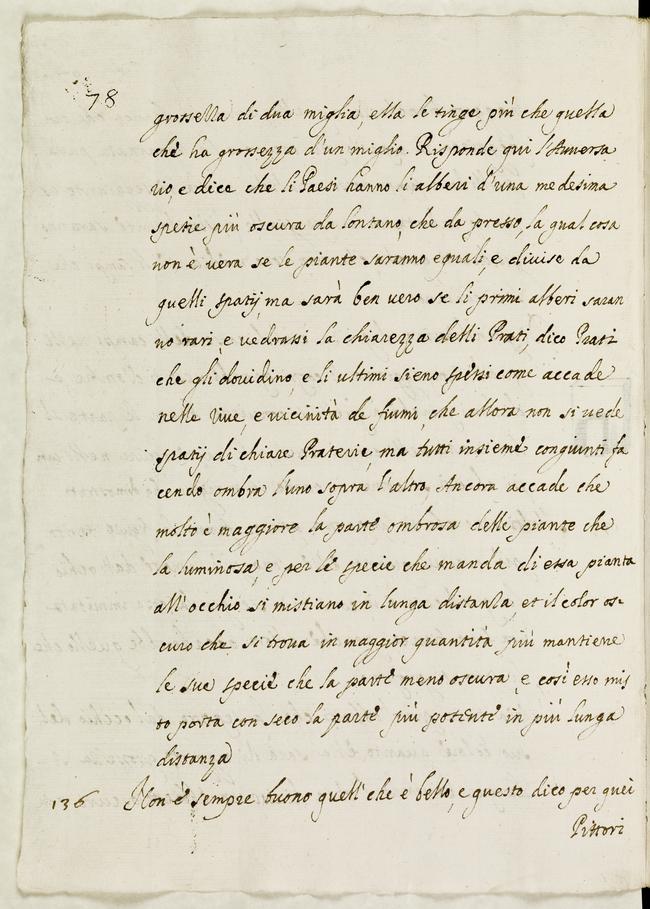 78
grossezza di dua miglia, ella le tinge più che quella
che ha grossezza d'un miglio. Risponde qui l'Auuersa
rio, e dice che li Paesi hanno li alberi d'una medesima
spetie più oscura da lontano, che da presso, la qual cosa
non è vera se le piante saranno eguali, e divise da
quelli spatij, ma sarà ben vero se li primi alberi saran
no rari, e vedrassi la chiarezza delli Prati, dico Prati
che gli dividino, e li ultimi sieno spessi come accade
nelle rive, e vicinità de fiumi, che allora non si vede
spatij di chiare Praterie, ma tutti insieme congiunti fa
cendo ombra l'uno sopra l'altro. Ancora accade che
molto è maggiore la parte ombrosa delle piante che
la luminosa, e per le specie che manda di essa pianta
all'occhio si mistiano in lunga distanza, et il color os=
curo che si trova in maggior quantità più mantiene
le sue specie che la parte meno oscura, e così esso mis
to porta con seco la parte più potente in più lunga
distanza
136 Non è sempre buono quell'che è bello, e questo dico per quei
Pittori